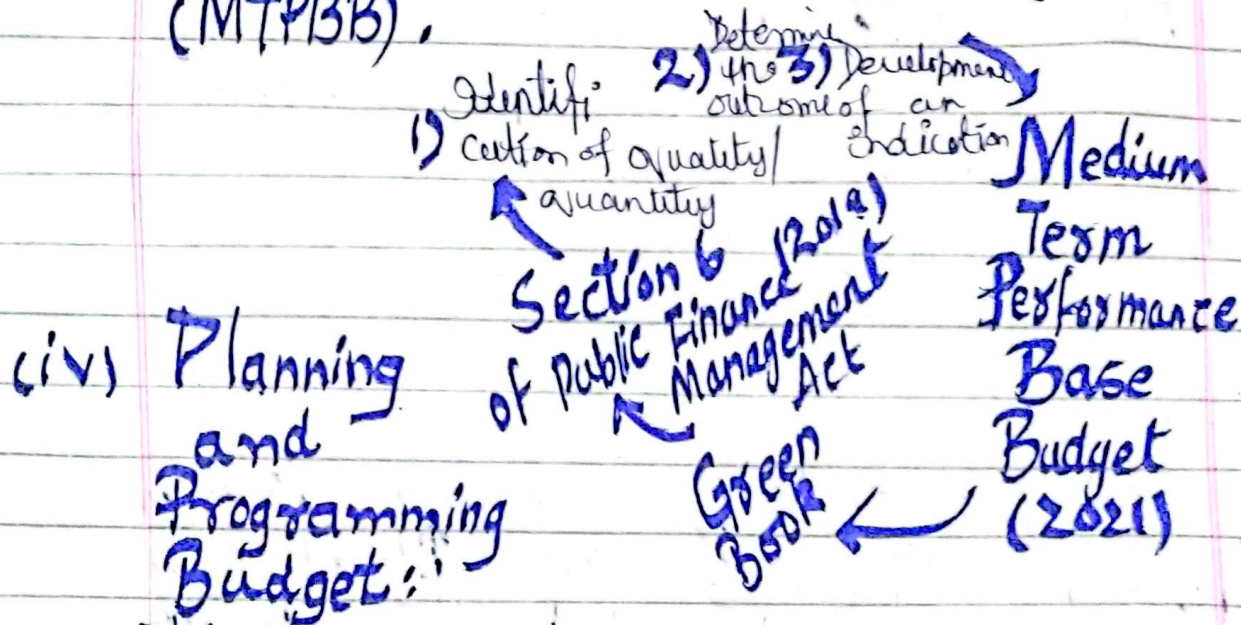 (MTPBB).
1) Identifi
cation of quality/
quantity
2) Determine
the
outcome of
3) Development
an
Indication
Medium
Term
Performance
Base
Budget
(2021)
Green
Book
Section 6 (2019)
of Public Finance
Management
Act
(iv) Planning
and
Programming
Budget: